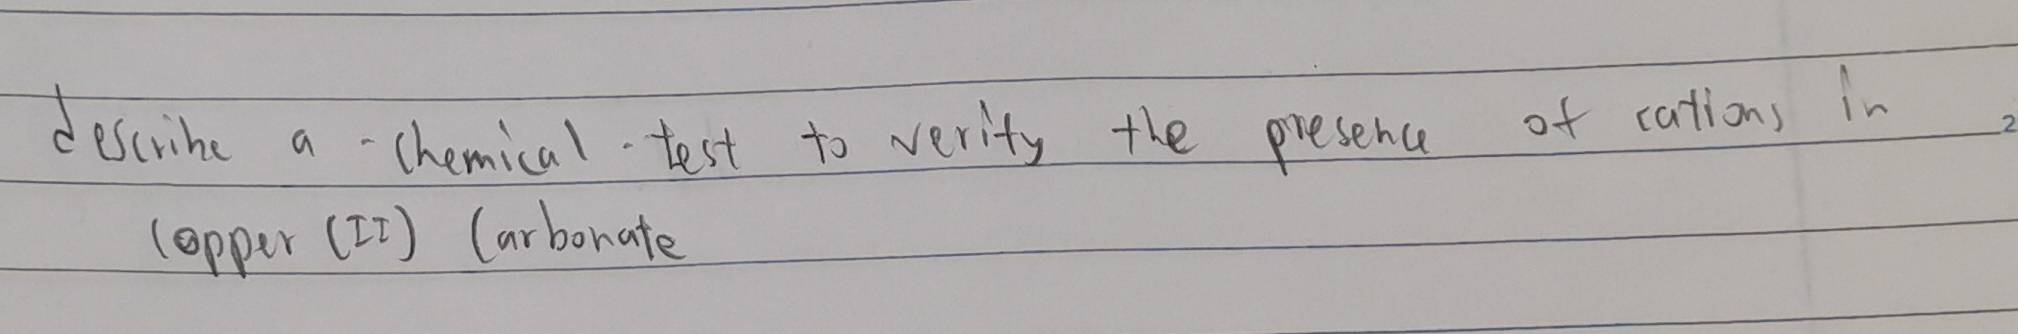 describe a - chemical - test to verify the presence of cations in 2
copper (II) Carbonate